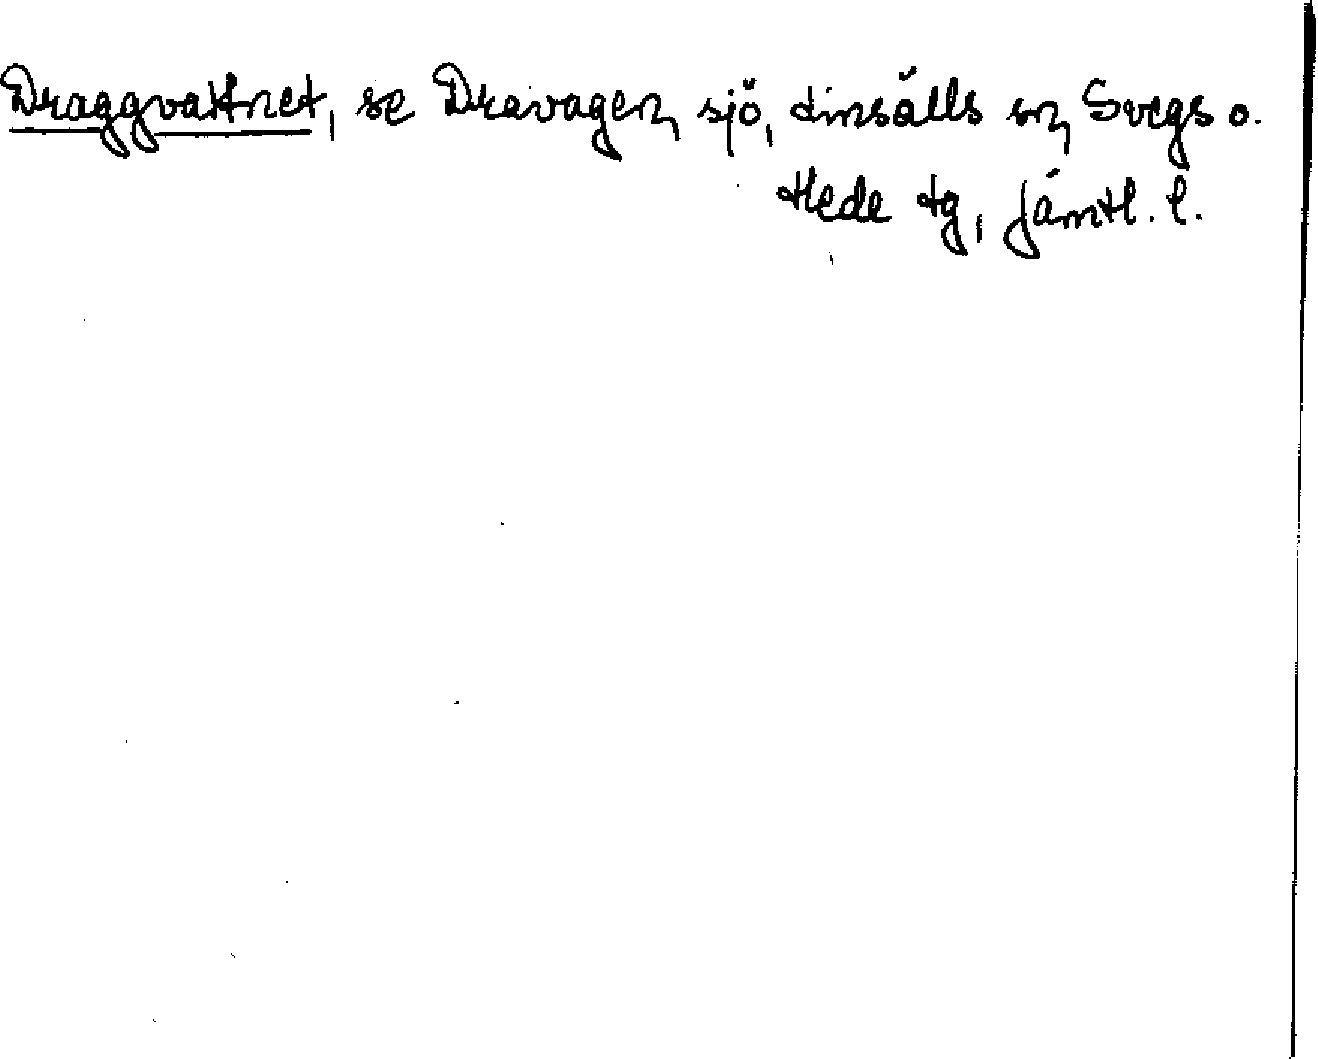 Draggvattnet, se Dravagen, sjö, Linsälls sn, Svegs o.
Hede tg, Jämtl. l.